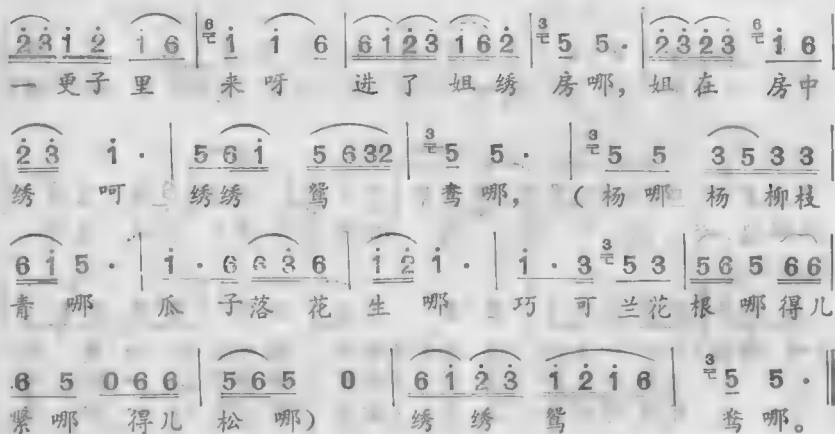 2̇ 3̇ 1̇ 2̇ 1̇ 6 | 6 1̇ 1̇ 6 | 6 1̇ 2̇ 3̇ 1̇ 6 2̇ | 3 5 5 · | 2̇ 3̇ 2̇ 3̇ 6 1̇ 6 |
一更子里 来呀 进了姐绣 房哪, 姐在 房中
2̇ 3̇ 1̇ · | 5 6 1̇ 5 6 3 2 | 3 5 5 · | 3 5 5 3 5 3 3 |
绣 呵 绣绣 鸳 鸯哪, (杨哪 杨柳枝
6 1̇ 5 · | 1̇ · 6 6 3̇ 6 | 1̇ 2̇ 1̇ · | 1̇ · 3 3 5 3 | 5 6 5 6 6 |
青哪 瓜子落花 生哪 巧可兰花 根哪得儿
6 5 0 6 6 | 5 6 5 0 | 6 1̇ 2̇ 3̇ 1̇ 2̇ 1̇ 6 | 3 5 5 · ‖
紧哪 得儿 松哪) 绣绣 鸳 鸯哪。